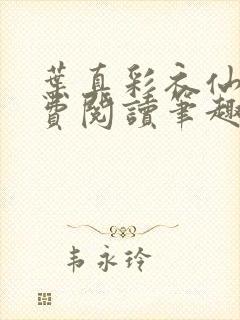 葉真彩衣仙
費閱讀筆趣
韦永玲